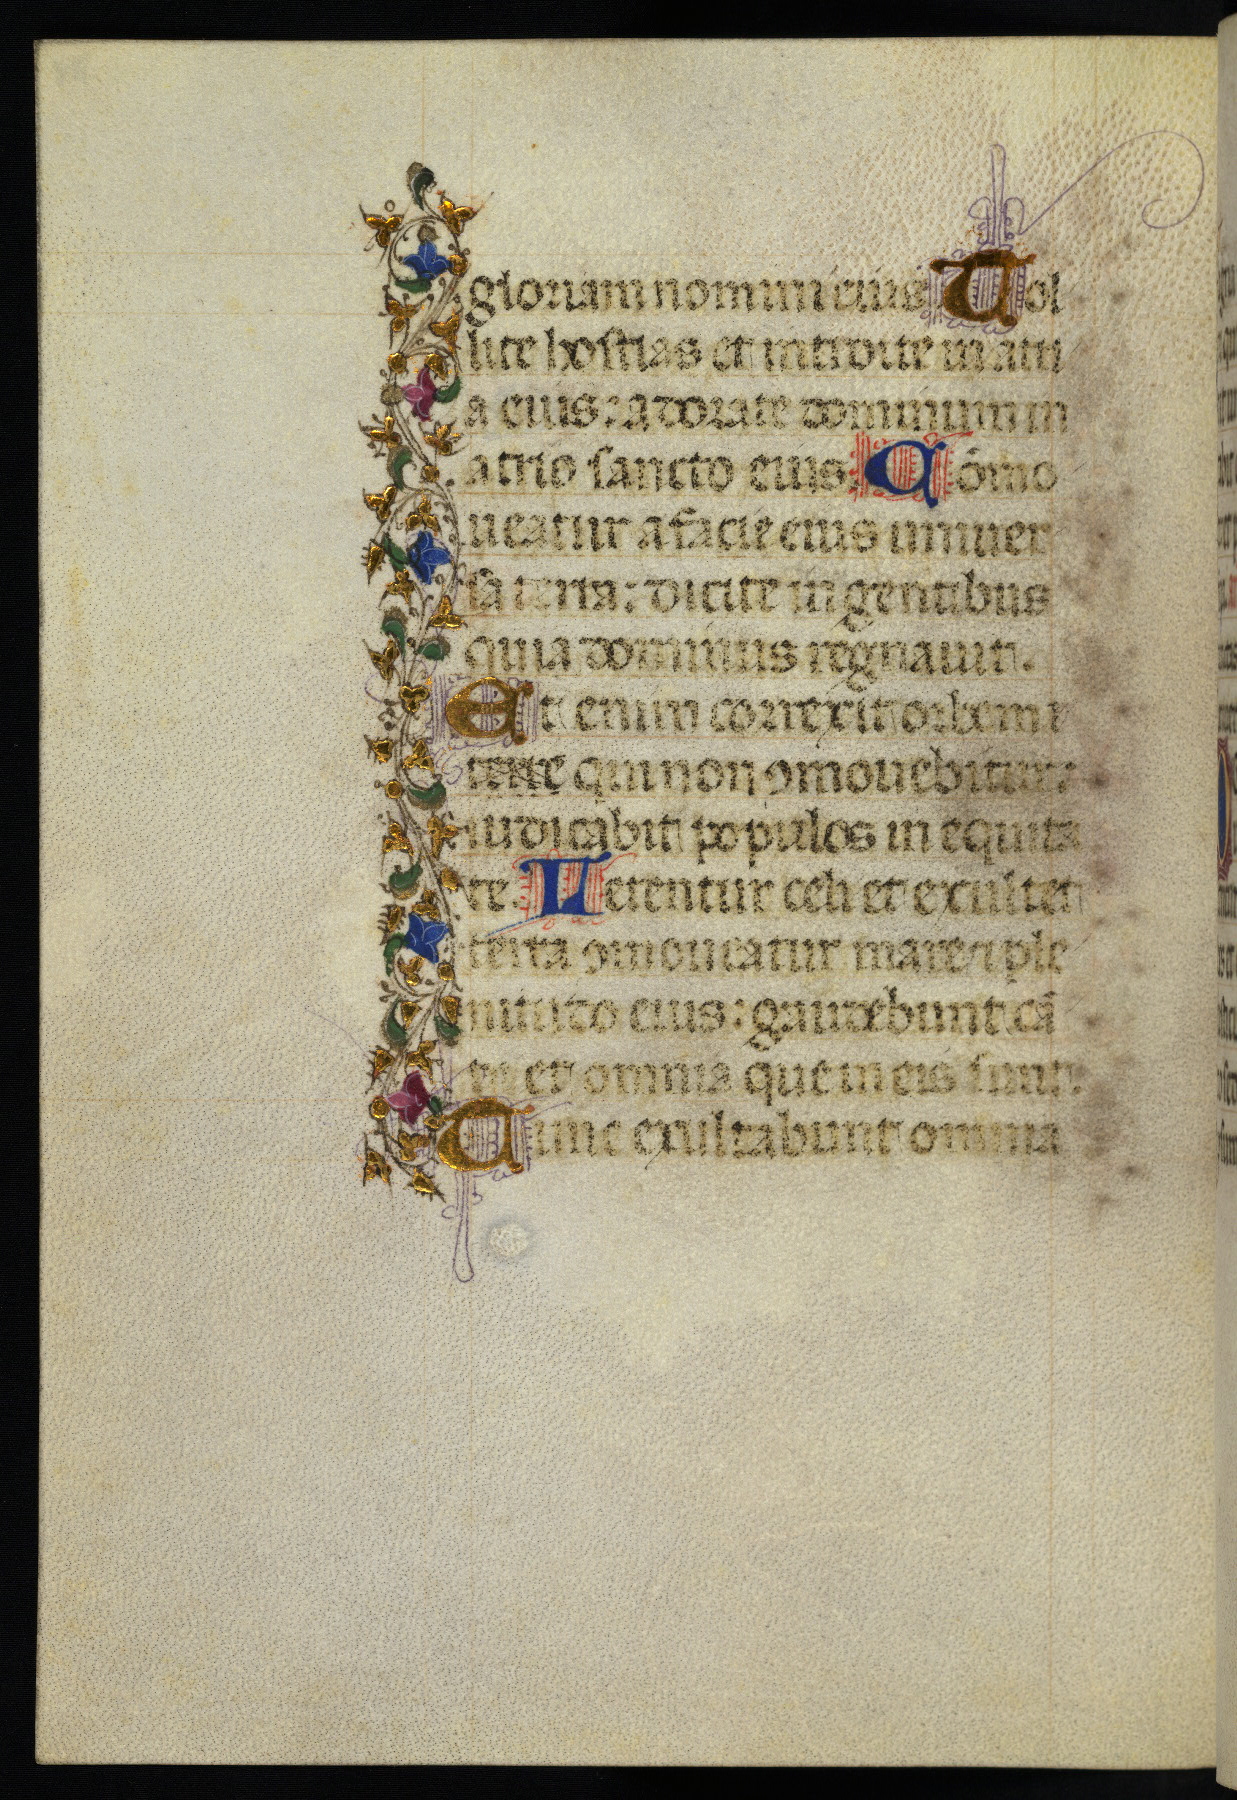 gloriam nomini eius Tol
lite hostias et introite in atri
a eius: adorate dominum in
atrio sancto eius. Cōmo
ueatur a facie eius uniuer
sa terra: dicite in gentibus
quia dominus regnauit.
Et enim correxit orbem t
erre qui non ꝯmouebitur:
iudicabit populos in equita
te. Letentur celi et exultet
terra ꝯmoueatur mare ⁊ ple
nitudo eius: gaudebunt cā
pi et omnia que in eis sunt.
Tunc exultabunt omnia